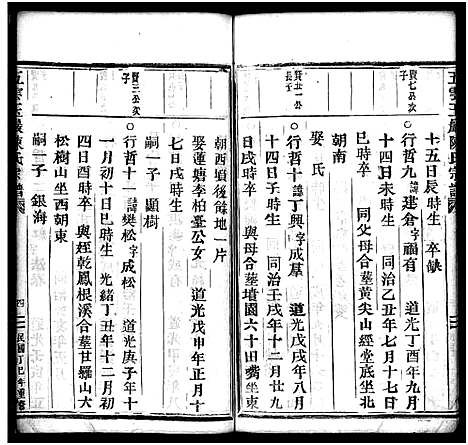 五雲王巖陳氏宗譜
十五日辰時生 卒缺
賢七公次子
○行哲九 諱建倉字福有 道光丁酉年九月
十四日未時生 同治乙丑年七月十七日
巳時卒 同父母合墓黃尖山經堂底坐北
朝南
娶 氏
賢廿一公長子
○行哲十 諱丁興字成羣 道光戊戌年八月
十四日亥時生 同治壬戌年十二月廿九
日戌時卒 與母合墓墳園六十田嘴坐東
朝西墳後餘地一片
娶蓮塘李柏臺公女 道光戊申年正月十
七日戌時生
嗣一子 顯樹
賢三公次子
○行哲十一 諱樊松字成松 道光庚子年十
一月初十日巳時生 光緒丁丑年十二月初
四日酉時卒 與姪乾鳳根溪合墓廿羅山六
松樹山坐西朝東
嗣一子 銀海
五雲王巖陳氏宗譜
四
民國丁巳年重修